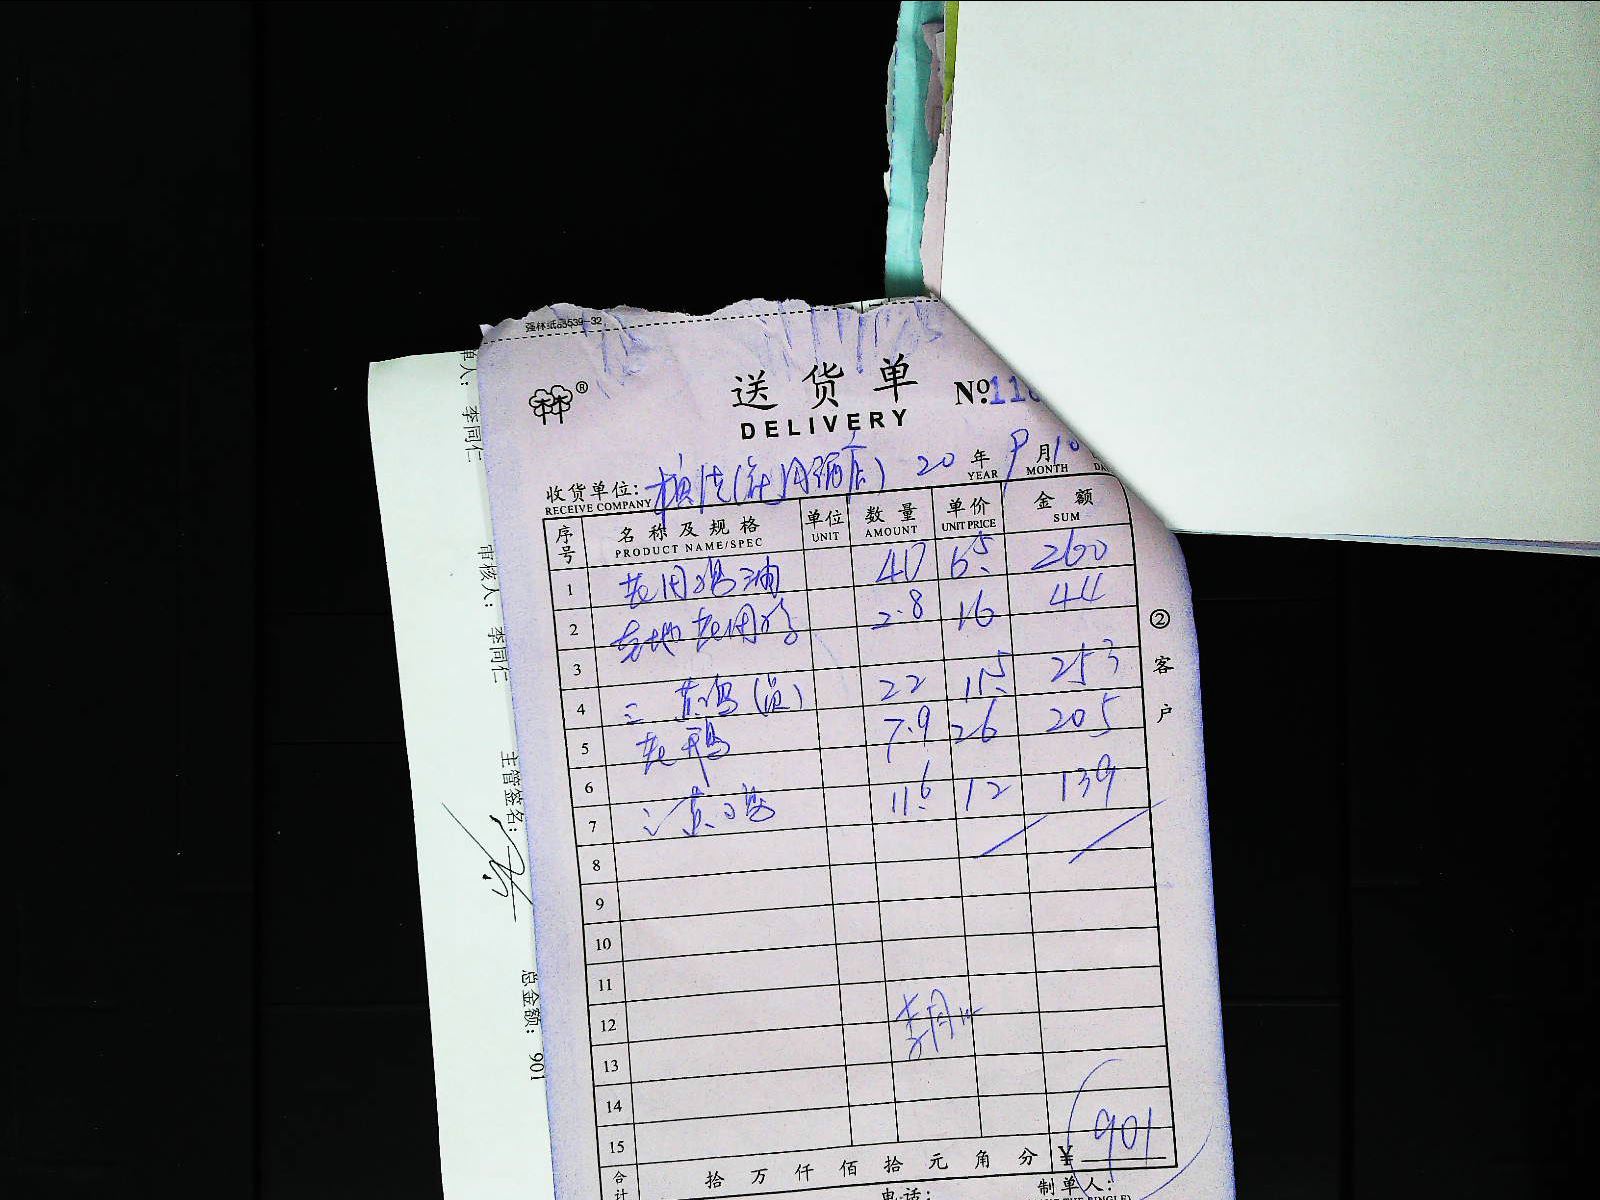 强林纸品539-32
送货单
DELIVERY
No.
收货单位: 20 年 9 月 10
RECEIVE COMPANY YEAR MONTH
序号 名称及规格 单位 数量 单价 金额
PRODUCT NAME/SPEC UNIT AMOUNT UNIT PRICE SUM
1 40 6.5 260
2 2.8 16 44
3
4 三黄鸡 22 11.5 253
5 老鸭 7.9 26 205
6
7 三黄鸡 11.6 12 139
8
9
10
11
12
13
14
15
合计 拾 万 仟 佰 拾 元 角 分 ¥ 901
电话: 制单人:
② 客户
单人: 李同仁
审核人: 李同仁
主管签名:
总金额: 901